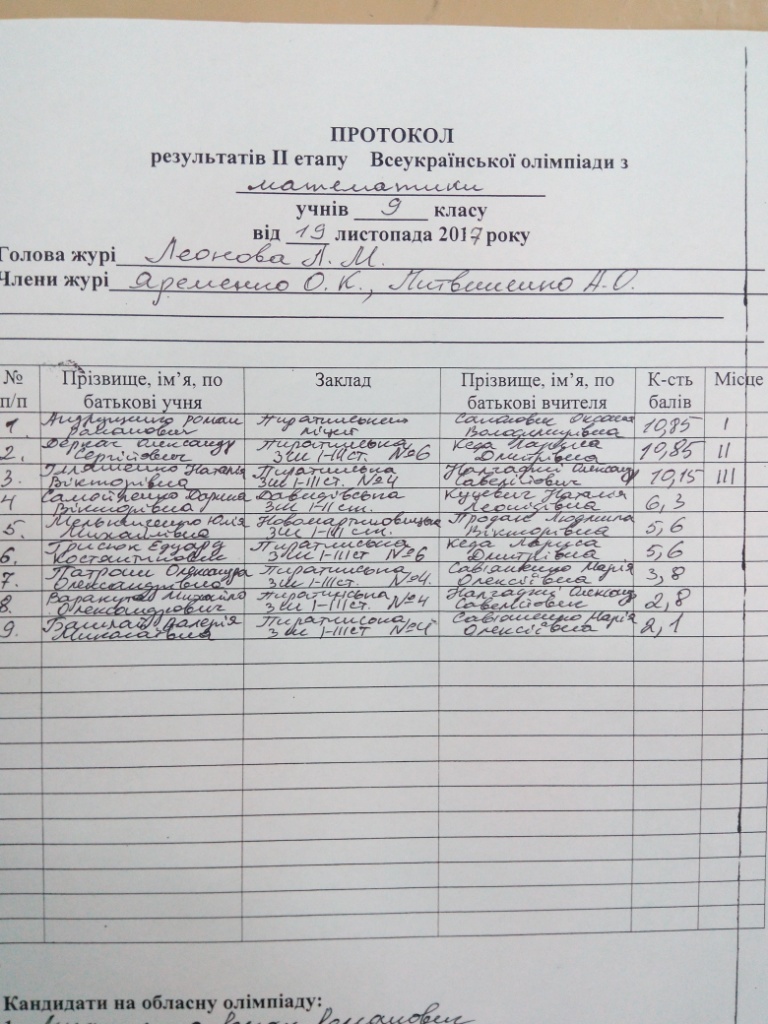 ПРОТОКОЛ
результатів ІІ етапу Всеукраїнської олімпіади з
математики
учнів 9 класу
від 19 листопада 2017 року
Голова журі Леонова Л. М.
Члени журі Яременко О. К., Литвиненко А.О.
№ п/п Прізвище, ім’я, по батькові учня Заклад Прізвище, ім’я, по батькові вчителя К-сть балів Місце
1. Андрущенко Роман Пирятинський
Романович ліцей Володимирівна 10,85 І
2. Деркач Олександр Пирятинська Кеда Лариса
Сергійович ЗШ І-ІІІ ст. №6 Дмитрівна 10,85 ІІ
3. Ілляшенко Наталія Пирятинська
Вікторівна ЗШ І-ІІІ ст. №4 Савелійович 10,15 ІІІ
4 Самойленко Дарина Давидівська Куцевич Наталія
Вікторівна ЗШ І-ІІ ст. Леонідівна 6,3
5. Юлія Новомартиновицька Людмила
Михайлівна ЗШ І-ІІ ст. Вікторівна 5,6
6. Едуард Пирятинська Кеда Лариса
Костянтинович ЗШ І-ІІІ ст №6 Дмитрівна 5,6
7. Олександра Пирятинська Марія
Олександрівна ЗШ І-ІІІ ст. №4. Олексіївна 3,8
8. Михайло Пирятинська
Олександрович ЗШ І-ІІІ ст. №4 Савелійович 2,8
9. Валерія Пирятинська Марія
Миколаївна ЗШ І-ІІІ ст №4 Олексіївна 2,1
Кандидати на обласну олімпіаду:
Роман Романович